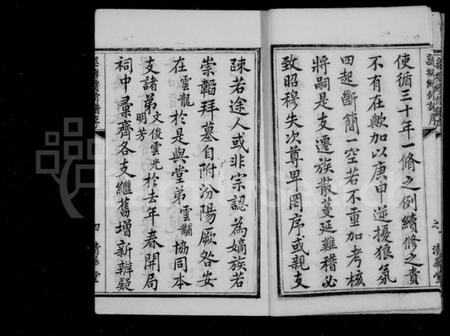 使循三十年一條之例續修之責
不有在歟加以庚申逆擾狼氛
四起斷簡一空若不重加考核
將嗣是支遷族散蔓延難稽必
致昭穆失次尊卑罔序或親支
疎若途人或非宗認為嫡族若
崇韜拜墓自附汾陽厥咎安
在雲龍於是與堂弟雲黼協同本
支諸弟文俊雲光明芳於去年春開局
祠中彙齊各支繼舊增新辨疑